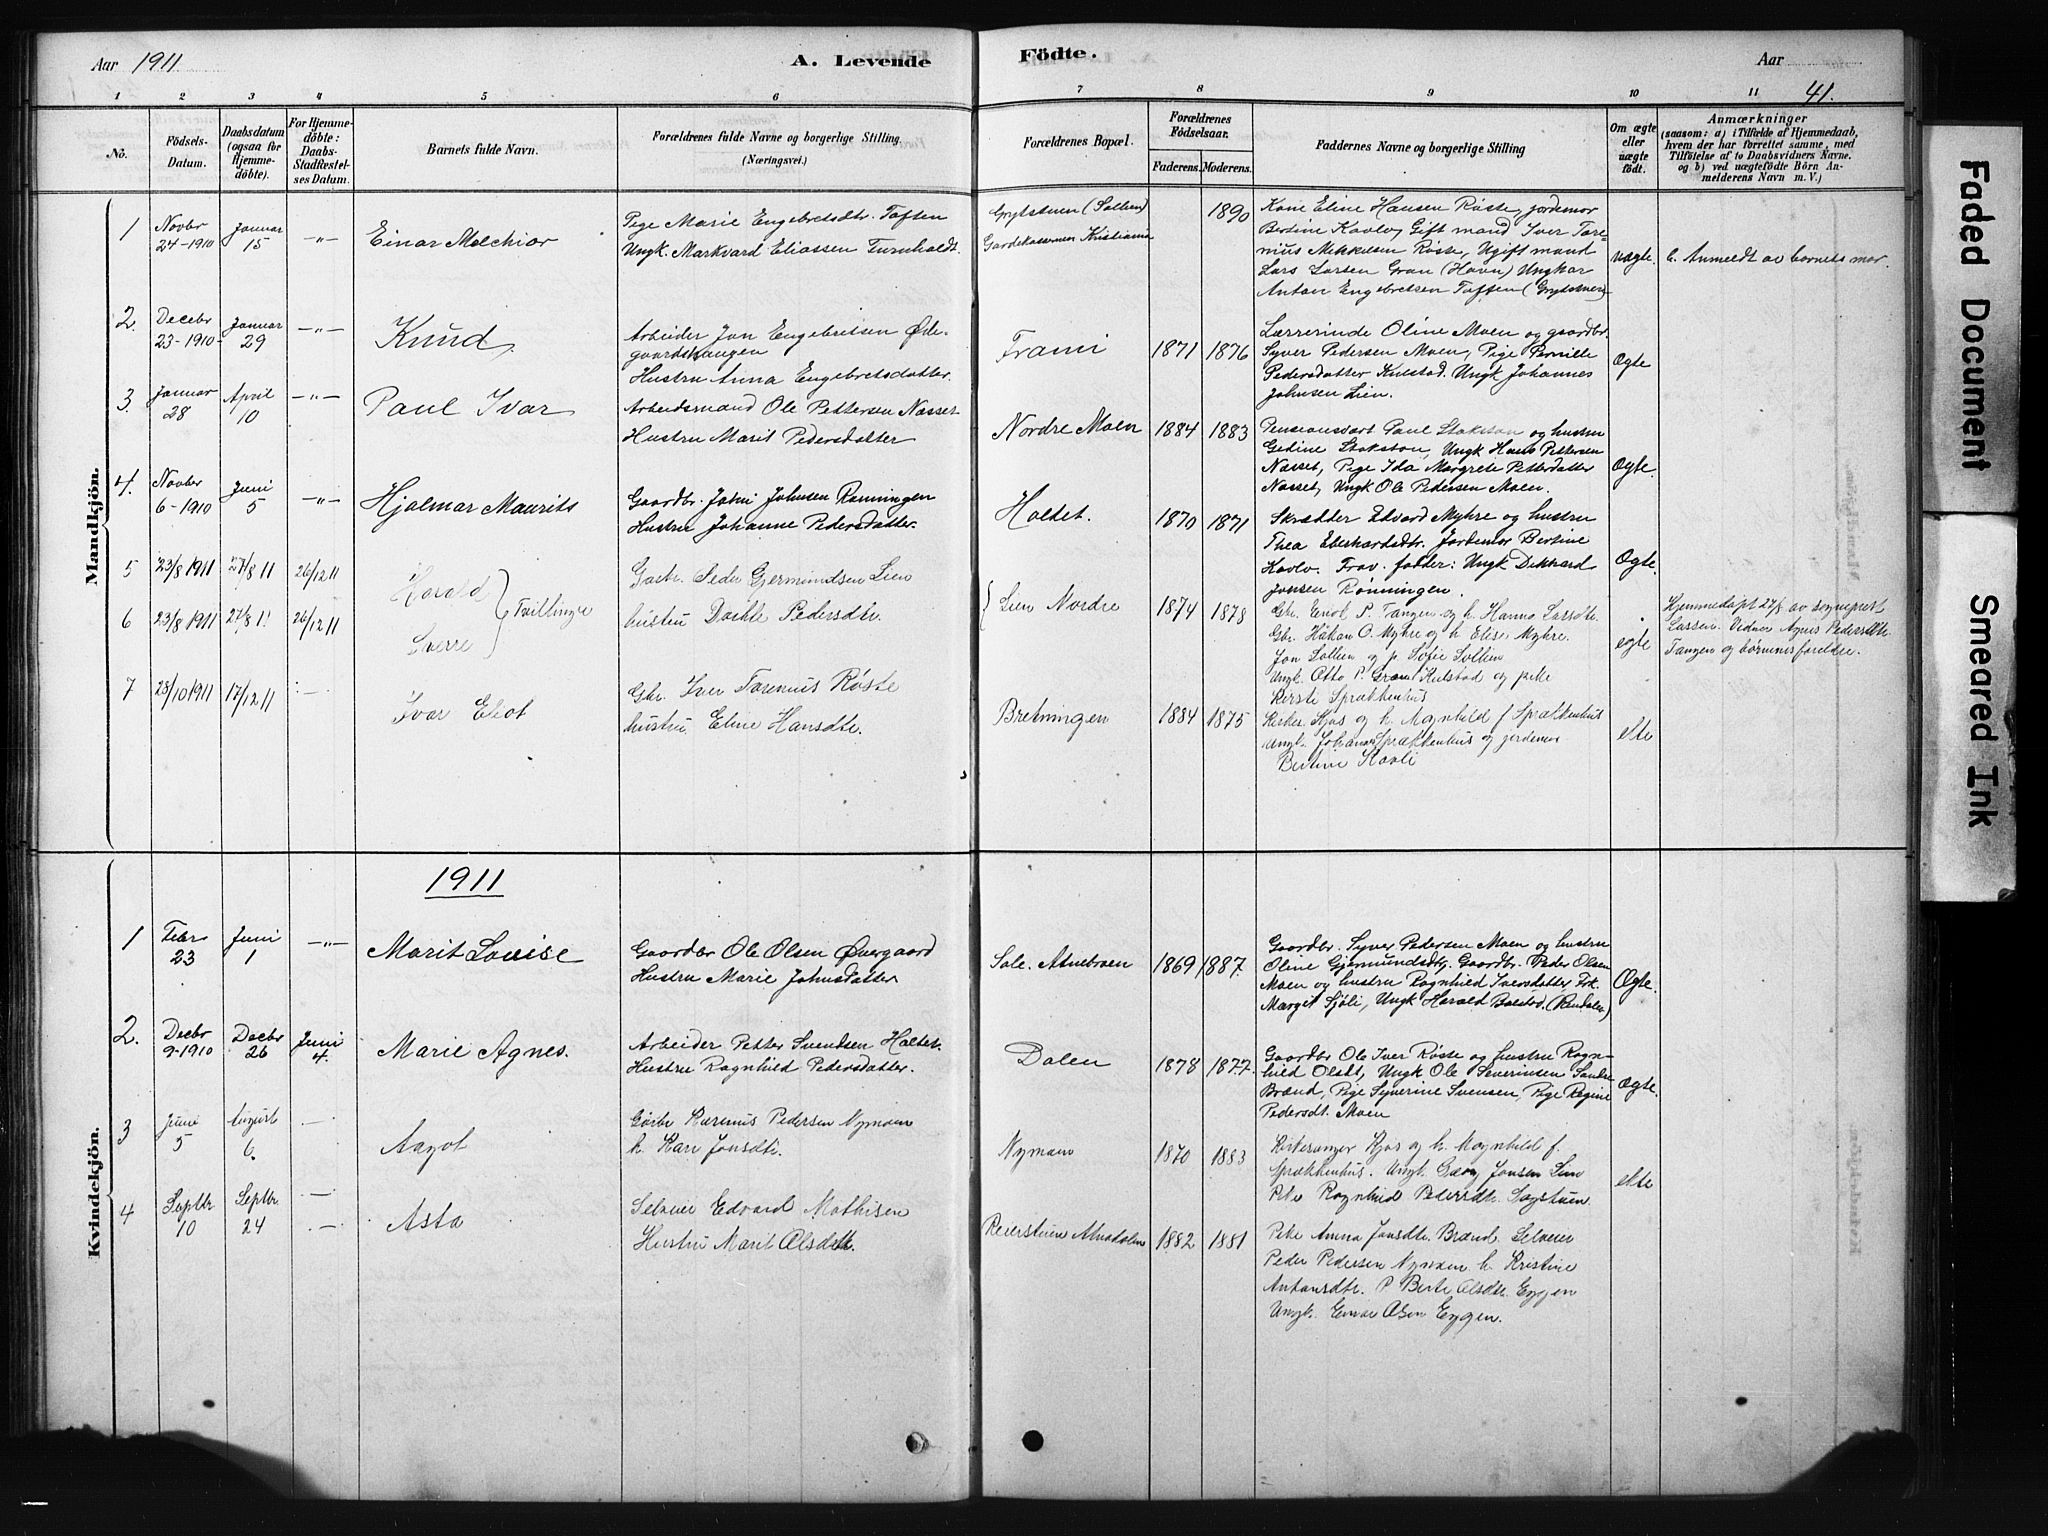 Aar 1911
A. Levende
Födte.
Aar
41.
1 2 3 4 5 6 7 8 9 10 11
No.
Födsels-Datum.
Daabsdatum (ogsaa for Hjemme-döbte).
For Hjemme-döbte: Daabs-Stadfæstel-ses Datum.
Barnets fulde Navn.
Forældrenes fulde Navne og borgerlige Stilling. (Næringsvei.)
Forældrenes Bopæl.
Forældrenes Födselsaar.
Faderens. Moderens.
Faddernes Navne og borgerlige Stilling
Om ægte eller uægte födt.
Anmærkninger
(saasom: a) i Tilfælde af Hjemmedaab, hvem der har forrettet samme, med Tilföielse af to Daabsvidners Navne, og b) ved uægtefödte Börn An-melderens Navn m. V.)
Mandkjön.
1 Novbr 24-1910 Januar 15 -"- Einar Melchior
Pige Marie Engebretsdtr. Toften
Ungk. Markvard Eliassen Turnholdt.
Grytstuen (Sollien)
Gardekasernen Kristiania
1890
Kone Eline Hansen Røste, jordemor
Bertine Kavlo, Gift mand Iver Tore-
nius Mikkelsen Røste, Ugift mand
Lars Larsen Gran (Havn) Ungkar
Anton Engebretsen Toften (Grytstuen)
uægte. b. Anmeldt av barnets mor.
2. Decebr 23-1910 Januar 29 -"- Knud
Arbeider Jon Engebretsen Øde-
gaardshaugen
Hustru Anna Engebretsdatter.
Frami 1871 1876
Lærerinde Oline Moen og gaardbr.
Syver Pedersen Moen, Pige Pernille
Pedersdatter Kulstad. Ungk Johannes
Johnsen Lien.
Ægte
3. Januar 28 April 10 -"- Paul Ivar
Arbeidsmand Ole Pettersen Næsset
Hustru Marit Pedersdatter
Nordre Moen 1884 1883
Pensionsvært Paul Stokston og hustru
Gedine Stokston, Ungk Hans Pettersen
Næsset, Pige Ida Margrete Petterdatter
Næsset, Ungk Ole Pedersen Moen.
Ægte.
4. Novbr 6-1910 Juni 5 -"- Hjalmar Maurits
Gaardbr. John Johnsen Rønningen
Hustru Johanne Pedersdatter.
Holtet. 1870 1871
Skrædder Edvard Myhre og hustru
Thea Eberhardsdtr. Jordemor Bertine
Kavlo. Frav. fadder: Ungk Dekhard
Jonsen Rønningen.
Ægte.
5 23/8 1911 27/8 11 26/12 11 Harald
6 23/8 1911 27/8 11 26/12 11 Sverre
Tvillinger
Gaabr. Peder Gjermundsen Lien
hustru Dorthe Pedersdtr.
Lien Nordre 1874 1878
Gbr. Eriok P. Tangen og h. Hanna Larsdtr.
Gbr. Håkon O. Myhre og h. Elise Myhre.
Jon Sollien og p. Sofie Sollien
Ungk. Otto P. Gran Kulstad og pike
Kirsti Sprækkenhus
egte
Hjemmedøpt 27/8 av sogneprest
Larsen. Vidner Agnes Pedersdtr.
Tangen og børnenes foreldre.
7 28/10 1911 17/12 11 -"- Ivar Eliot
Gbr. Iver Torenius Røste
hustru Eline Hansdtr.
Bretningen 1884 1875
Kirkes. Kjos og h. Magnhild f. Sprækkenhus
Ungk. Johannes Sprækkenhus og jordemor
Bertine Kavli
ekte
Kvindekjön.
1911
1 Febr 23 Juni 1 -"- Marit Louise
Gaardbr Ole Olsen Øvergaard
Hustru Marie Johnsdatter
Sole. Atnebroen 1869 1887.
Gaardbr. Syver Pedersen Moen og hustru
Oline Gjermundsdtr, Gaardbr. Peder Olsen
Moen og hustru Ragnhild Iversdatter, Frk.
Margit Sjøli, Ungk Harald Bolstad. (Rendalen)
Ægte.
2. Decbr 9-1910 Decbr 26 Juni 4. Marie Agnes.
Arbeider Petter Svendsen Holtet.
Hustru Ragnhild Pedersdatter.
Dalen 1878 1877.
Gaardbr Ole Iver Røste og hustru Ragn-
hild Olsdt, Ungk Ole Severinsen Sandre
Brænd, Pige Syverine Svensen, Pige Regine
Pedersdt. Moen
Ægte.
3 Juni 5 August 6. Aagot
Gårbr Rasmus Pedersen Nymoen
h. Kari Jonsdtr.
Nymoen 1870 1883
Kirkesanger Kjos og h. Magnhild f.
Sprækkenhus. Ungk. Georg Jonsen Lien
Pike Ragnhild Pedersdtr. Sagstuen.
ekte
4 Septbr 10 Septbr 24 Asta
Selveier Edvard Mathisen
Hustru Marit Olsdtr.
Reierstuen Atnedalen 1882 1881
Pike Anna Jonsdtr. Brænd. Selveier
Peder Pedersen Nymoen h. Kristine
Antonsdtr. P. Berte Olsdtr. Eggen
Ungk. Einar Olsen Eggen.
Faded Document
Smeared Ink